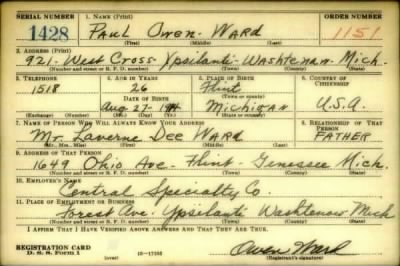 SERIAL NUMBER 1. NAME (Print) ORDER NUMBER
1428 PAUL OWEN WARD 1151
(First) (Middle) (Last)
2. ADDRESS (Print)
921- West Cross- Ypsilanti- Washtenaw Mich.
(Number and street or R. F. D. number) (Town) (County) (State)
3. TELEPHONE 4. AGE IN YEARS 5. PLACE OF BIRTH 6. COUNTRY OF CITIZENSHIP
1518 26 Flint
DATE OF BIRTH (Town or county)
Aug 27- Michigan U.S.A.
(Exchange) (Number) (Mo.) (Day) (Yr.) (State or country)
7. NAME OF PERSON WHO WILL ALWAYS KNOW YOUR ADDRESS 8. RELATIONSHIP OF THAT PERSON
Mr. Laverne Dee WARD FATHER
(Mr., Mrs., Miss) (First) (Middle) (Last)
9. ADDRESS OF THAT PERSON
1649 Ohio Ave- Flint- Genessee Mich.
(Number and street or R. F. D. number) (Town) (County) (State)
10. EMPLOYER'S NAME
Central Specialty Co.
11. PLACE OF EMPLOYMENT OR BUSINESS
Forest Ave. Ypsilanti Washtenow Mich
(Number and street or R. F. D. number) (Town) (County) (State)
I AFFIRM THAT I HAVE VERIFIED ABOVE ANSWERS AND THAT THEY ARE TRUE.
REGISTRATION CARD Owen Ward
D. S. S. Form 1 (Registrant's signature)